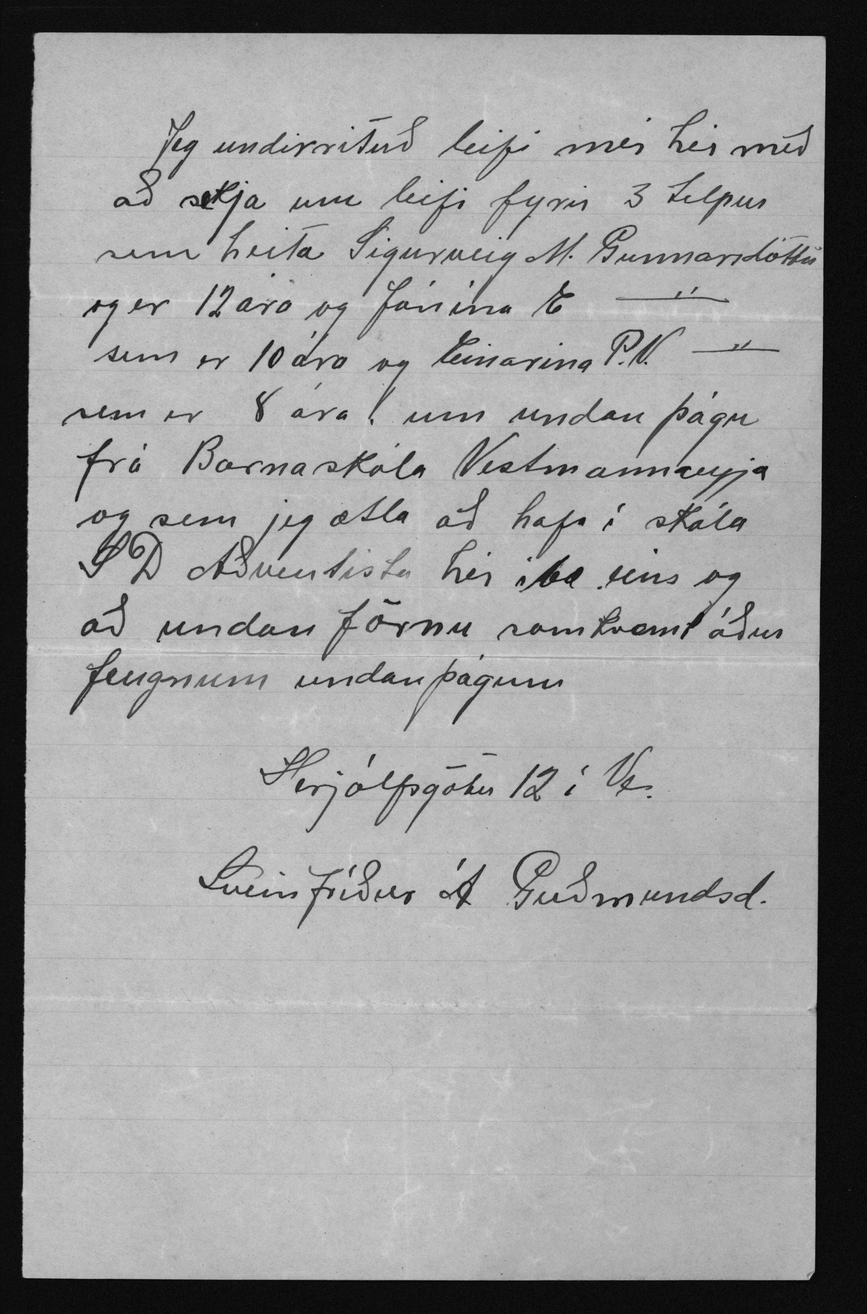 Jeg undirrituð leifi mér hér með
að sækja um leifi fyrir 3 telpur
sem heita Sigurveig M. Gunnarsdóttir
og er 12 ára og Jónína E —"—
sem er 10 ára og Einarina P.V. —"—
sem er 8 ára. um undan þágu
frá Barnaskóla Vestmannaeyja
og sem jeg ætla að hafa í skóla
S D Aðventista hér í bæ eins og
að undan förnu samkvæmt áður
feugnum undanþágum
Herjólfsgötu 12 í Ve.
Sveinfríður Á Guðmundsd.